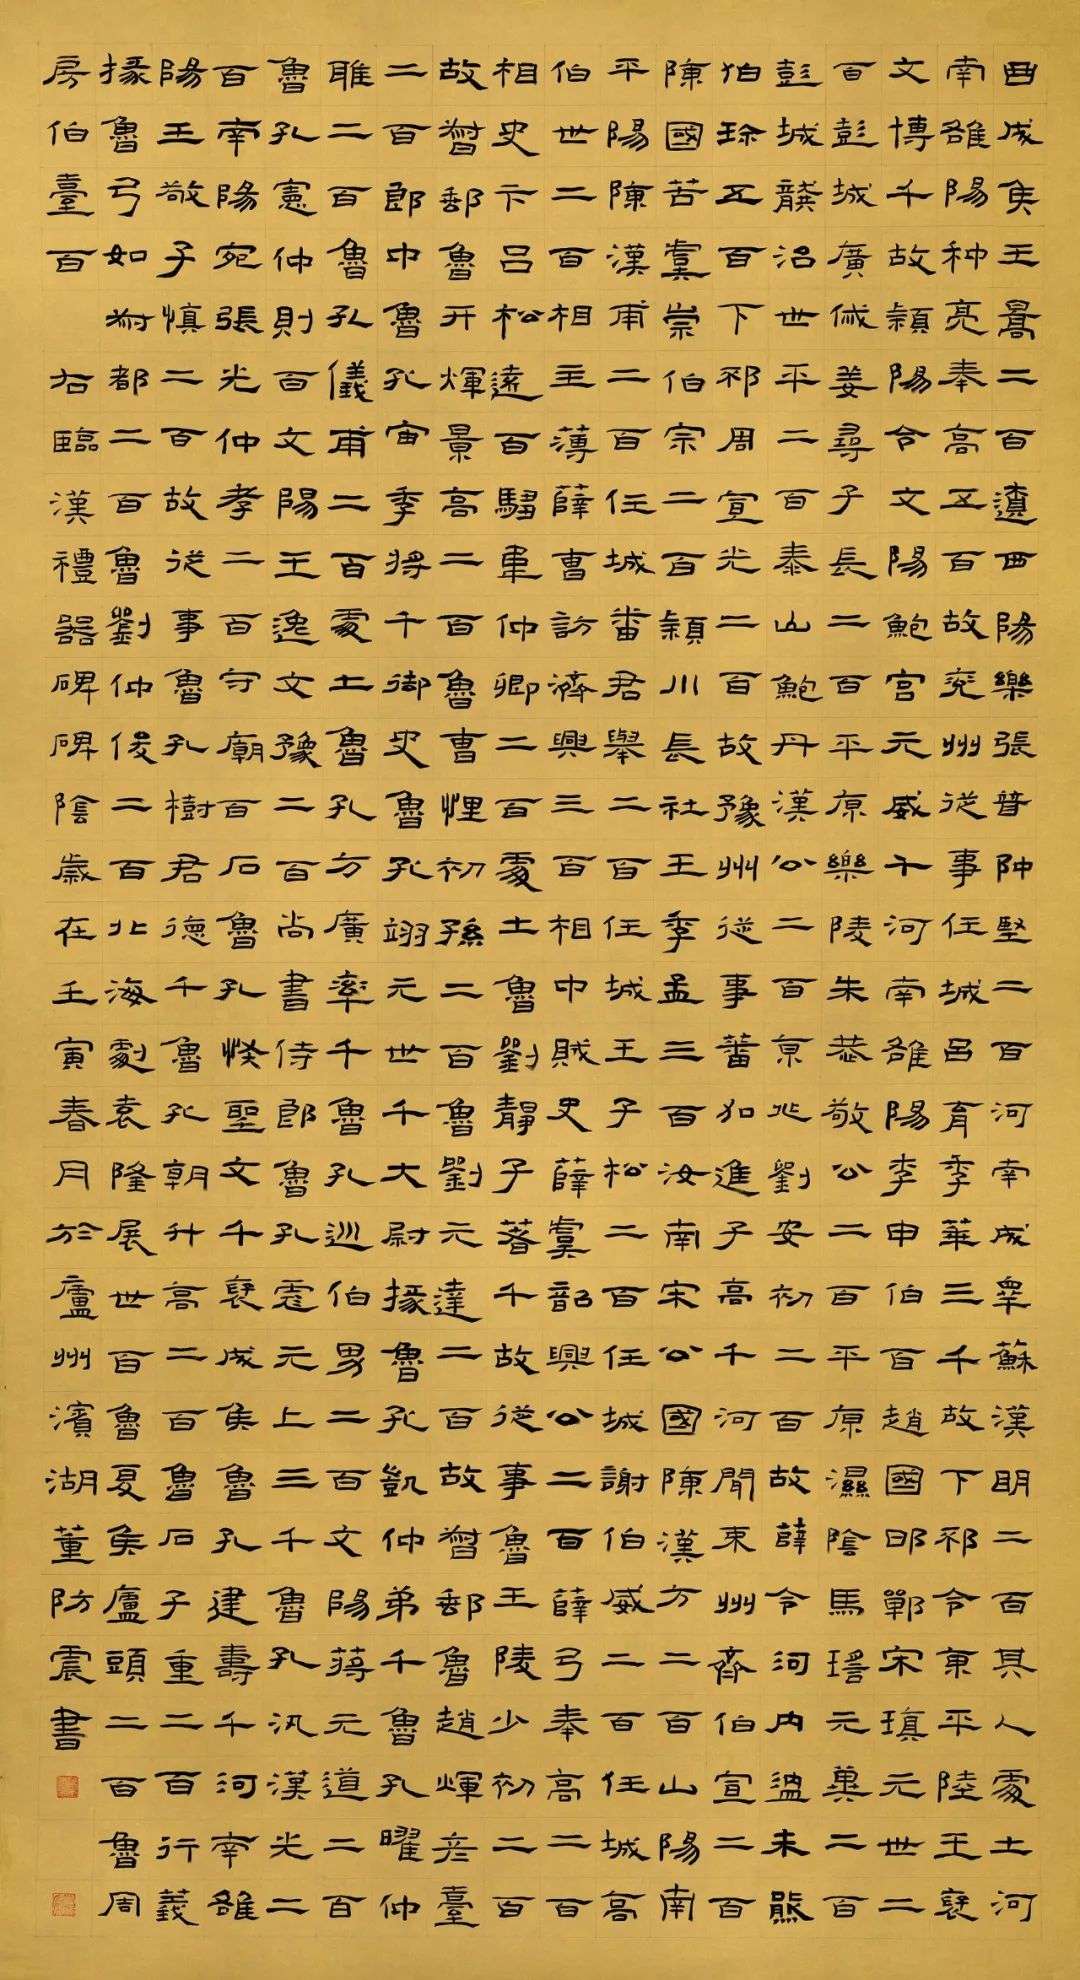 曲成侯王暠二百遼西陽樂張普仲堅二百河南成睪蘇漢明二百其人處士河
南雒陽种亮奉高五百故兗州從事任城呂育季華三千故下邳令東平陸王褒
文博千故潁陽令文陽鮑宮元威千河南雒陽李申伯百趙國邯鄲宋瑱元世二
百彭城廣戚姜尋子長二百平原樂陵朱恭敬公二百平原濕陰馬瑤元冀二百
彭城龔治世平二百泰山鮑丹漢公二百京兆劉安初二百故薛令河內溫朱熊
伯珍五百下邳周宣光二百故豫州從事蕃加進子高千河間東州齊伯宣二百
陳國苦虞崇伯宗二百潁川長社王季孟三百汝南宋公國陳漢方二百山陽南
平陽陳漢甫二百任城番君舉二百任城王子松二百任城謝伯威二百任城高
伯世二百相主薄薛曹訪濟興三百相中賊史薛虞韶興公二百薛弓奉高二百
相史卞呂松遠百騶韋仲卿二百處士魯劉靜子著千故從事魯王陵少初二百
故督郵魯开煇景高二百魯曹悝初孫二百魯劉元達二百故督郵魯趙煇彥臺
二百郎中魯孔宙季將千御史魯孔翊元世千大尉掾魯孔凱仲弟千魯孔曜仲
雅二百魯孔儀甫二百處士魯孔方廣率千魯孔巡伯男二百文陽蔣元道二百
魯孔憲仲則百文陽王逸文豫二百尚書侍郎魯孔彪元上三千魯孔汎漢光二
百南陽宛張光仲孝二百守廟百石魯孔恢聖文千褒成侯魯孔建壽千河南雒
陽王敬子慎二百故從事魯孔樹君德千魯孔朝升高二百魯石子重二百行義
掾魯弓如叔都二百魯劉仲俊二百北海劇袁隆展世百魯夏侯廬頭二百魯周
房伯臺百 右臨漢禮器碑碑陰歲在壬寅春月於廬州濱湖董防震書